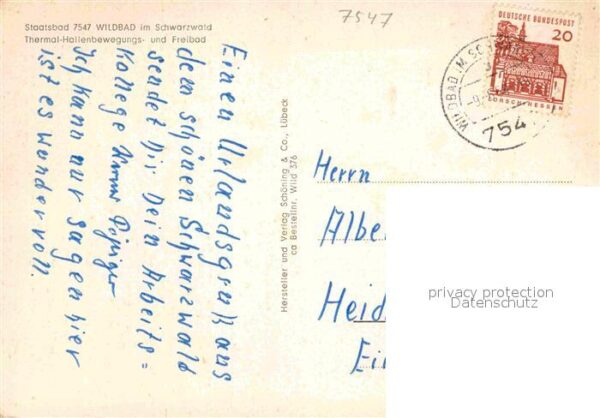 Staatsbad 7547 WILDBAD im Schwarzwald
Thermal-Hallenbewegungs- und Freibad
7547
DEUTSCHE BUNDESPOST
20
LORSCH/HESSEN
WILDBAD
754
Einen Urlaubsgruß aus
dem schönen Schwarzwald
sendet Dir Dein Arbeits=
Kollege
Ich kann nur sagen hier
ist es wundervoll.
Hersteller und Verlag Schöning & Co., Lübeck
ca Bestellnr. Wild 376
Herrn
Albe
Heid
Ei
privacy protection
Datenschutz